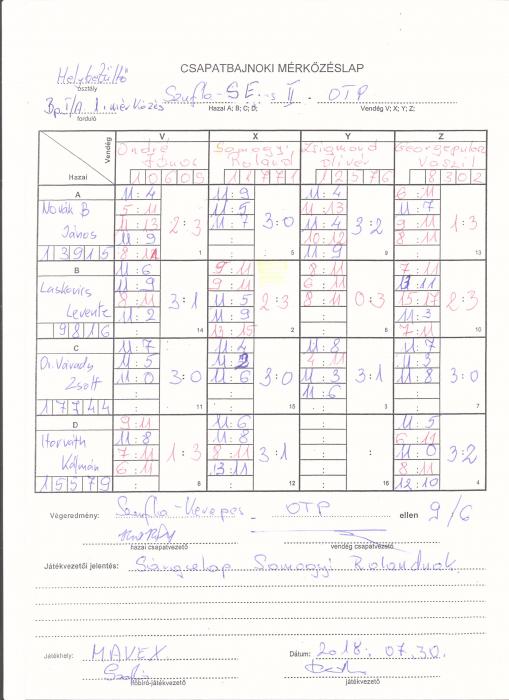 CSAPATBAJNOKI MÉRKŐZÉSLAP
Helybetöltő
osztály
Bp I/A 1. mérkőzés
forduló
Szuflo-SE II - OTP
Hazai A; B; C; D;
Vendég V; X; Y; Z;
Vendég
Hazai
V X Y Z
János Somogyi Roland Zsigmond Olivér
10609 11771 12576 8302
A
Novák B János
13915
11:4 11:9 11:4 6:11
5:11 11:5 11:13 11:7
4:13 11:7 11:4 9:11
11:9 : 10:12 8:11
8:11 : 11:9 :
2:3 3:0 3:2 1:3
1 5 9 13
B
Laskovics Levente
9816
11:6 9:11 8:11 7:11
11:9 9:11 6:11 13:11
8:11 11:5 8:11 15:17
11:2 11:9 : 11:3
: 13:15 : 7:11
3:1 2:3 0:3 2:3
14 2 6 10
C
Dr. Várady Zsolt
17744
11:7 11:4 11:8 11:7
11:5 11:2 4:11 11:3
11:0 11:6 11:3 11:8
: : 11:6 :
3:0 3:0 3:1 3:0
11 15 3 7
D
Horváth Kálmán
15579
9:11 11:6 : 11:5
11:8 11:8 : 6:11
7:11 8:11 : 11:0
6:11 13:11 : 8:11
: : : 12:10
1:3 3:1 3:2
8 12 16 4
Végeredmény: Szuflo-Kerepes - OTP ellen 9/6
hazai csapatvezető
vendég csapatvezető
Játékvezetői jelentés: Sárgalap Somogyi Rolandnak.
Játékhely: MAVEX
Dátum: 2018. 07.30.
főbíró-játékvezető
játékvezető